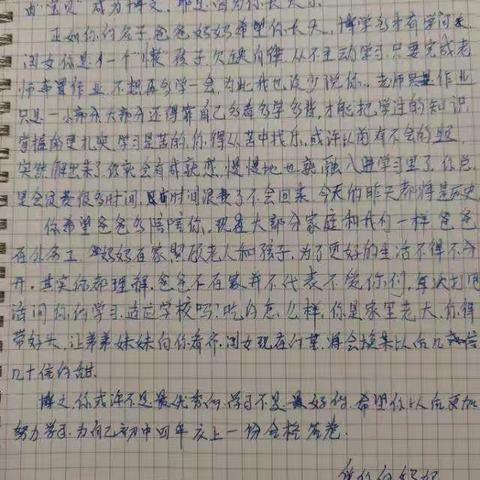 由"宝贝"成为博文,那是因为你长大了.
正如你的名子,爸爸妈妈希望你长大,博学多才有学问.
闺女你是个"懒"孩子,欠缺自律,从不主动学习.只要完成老
师布置作业,不想再多学一会,为此我也没少说你.老师只是作业
只是一小部分大部分还得靠自己多看多学多背,才能把学过的知识
掌握的更扎实,学习是苦的,你得从苦中找乐,或许以前有不会的题,
突然解出来了,你就会有成就感,慢慢地也就融入进学习里了,你总
是会浪费很多时间,且时间浪费了不会回来,今天的昨天都将是历史
你希望爸爸多陪陪你,现在大部分家庭和我们一样,爸爸
在外务工,妈妈在家照顾老人和孩子,为了更好的生活不得不分
开,其实你都理解,爸爸不在家并不代表不爱你们,每次打电
话问你们学习,适应学校吗?吃的怎么样,你是家里老大,你得
带好头,让弟弟妹妹向你看齐.闺女现在的苦,将会换来以后几
几十倍的甜.
博文你或许不是最优秀的,学习不是最好的,希望你以后更加
努力学习,为自己初中四年交上一份合格答卷.
爱你的妈妈